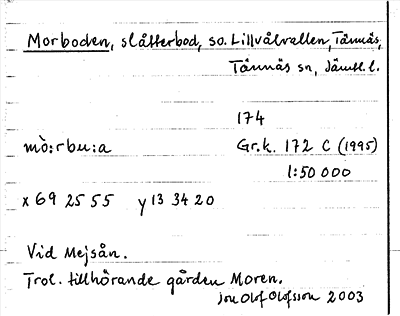 Morboden, slåtterbod, so. Lillvålvallen, Tännäs,
Tännäs sn, Jämtl l.
174
mò:rbu:a Gr.k. 172 C (1995)
1:50 000
x 69 25 55 y 13 34 20
Vid Mejsån.
Trol. tillhörande gården Moren.
Jon Olof Olofsson 2003